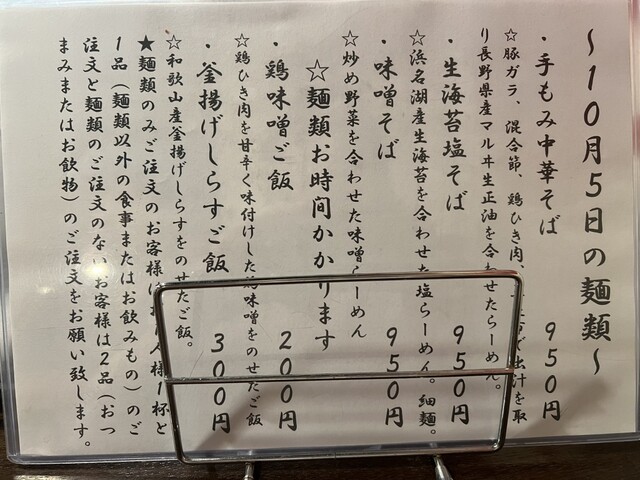 ～10月5日の麺類～
・手もみ中華そば 950円
☆豚ガラ、混合節、鶏ひき肉、で出汁を取
り長野県産マルヰ生正油を合わせたらーめん。
・生海苔塩そば 950円
☆浜名湖産生海苔を合わせた塩らーめん。細麺。
・味噌そば 950円
☆炒め野菜を合わせた味噌らーめん
☆麺類お時間かかります
・鶏味噌ご飯 200円
☆鶏ひき肉を甘辛く味付けした鶏味噌をのせたご飯
・釜揚げしらすご飯 300円
☆和歌山産釜揚げしらすをのせたご飯。
★麺類のみご注文のお客様は人様1杯と
1品（麺類以外の食事またはお飲みもの）のご
注文と麺類のご注文のないお客様は2品（おつ
まみまたはお飲物）のご注文をお願い致します。